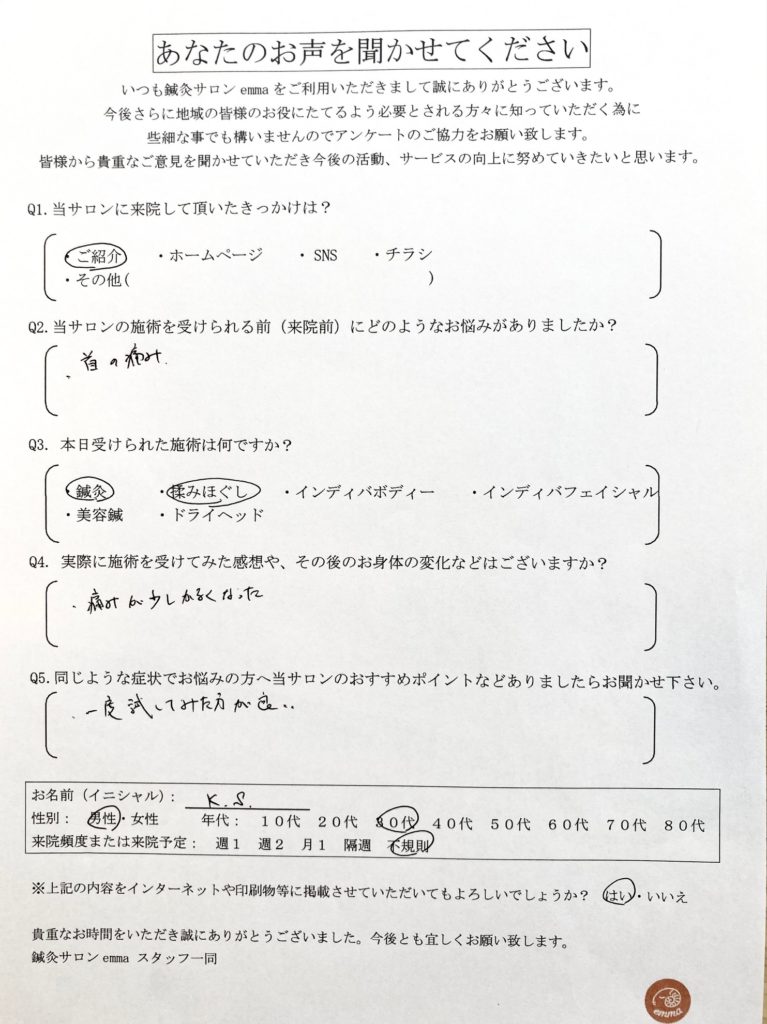 あなたのお声を聞かせてください
いつも鍼灸サロン emma をご利用いただきまして誠にありがとうございます。
今後さらに地域の皆様のお役にたてるよう必要とされる方々に知っていただく為に
些細な事でも構いませんのでアンケートのご協力をお願い致します。
皆様から貴重なご意見を聞かせていただき今後の活動、サービスの向上に努めていきたいと思います。
Q1.当サロンに来院して頂いたきっかけは？
・ご紹介 ・ホームページ ・SNS ・チラシ
・その他( )
Q2.当サロンの施術を受けられる前（来院前）にどのようなお悩みがありましたか？
・首の痛み
Q3. 本日受けられた施術は何ですか？
・鍼灸 ・揉みほぐし ・インディバボディー ・インディバフェイシャル
・美容鍼 ・ドライヘッド
Q4. 実際に施術を受けてみた感想や、その後のお身体の変化などはございますか？
・痛みが少しかるくなった
Q5.同じような症状でお悩みの方へ当サロンのおすすめポイントなどありましたらお聞かせ下さい。
・一度試してみた方が良い..
お名前（イニシャル）： K.S.
性別： 男性・女性 年代： 10代 20代 30代 40代 50代 60代 70代 80代
来院頻度または来院予定： 週1 週2 月1 隔週 不規則
※上記の内容をインターネットや印刷物等に掲載させていただいてもよろしいでしょうか？ はい・いいえ
貴重なお時間をいただき誠にありがとうございました。今後とも宜しくお願い致します。
鍼灸サロン emma スタッフ一同
emma